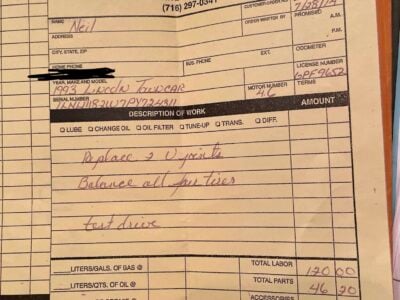 (716) 297-0341
CUSTOMER ORDER NO.
NAME Neil
ADDRESS
ORDER WRITTEN BY
PROMISED A.M. P.M.
CITY, STATE, ZIP
HOME PHONE
BUS. PHONE
EXT.
ODOMETER
YEAR, MAKE AND MODEL
LICENSE NUMBER
1993 Lincoln Towncar
SERIAL NUMBER
MOTOR NUMBER 4.6
TERMS
DESCRIPTION OF WORK
AMOUNT
LUBE CHANGE OIL OIL FILTER TUNE-UP TRANS. DIFF.
Replace 2 U joints
Balance all four tires
test drive
LITERS/GALS. OF GAS @
TOTAL LABOR 120 00
LITERS/QTS. OF OIL @
TOTAL PARTS 46 20
ACCESSORIES